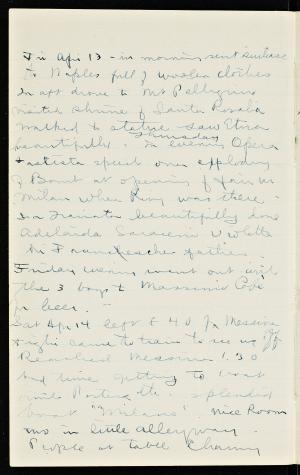 Fri Apr 13 - in morning sent suitcase
to Naples full of woolen clothes
In aft drove to Mt Pellegrino
visited shrine of Santa Rosalia
walked to statue - saw Etna
beautifully. - Thursday In evening Opera
Fascista speech over exploding
of Bomb at opening of fair in
Milan when King was there -
La Traviata beautifully done
Adelaida Saraceni Violetta
father
Friday evening went out with
the 3 boys to Massimo Café
for beer.
Sat Apr 14 left 8 40 for Messina
Luigi came to train to see us off
Reached Messina 1.30
had time getting to boat
with Porters etc. splendid
boat "Milano". Nice Room
no in little alleyway.
People at table Channy